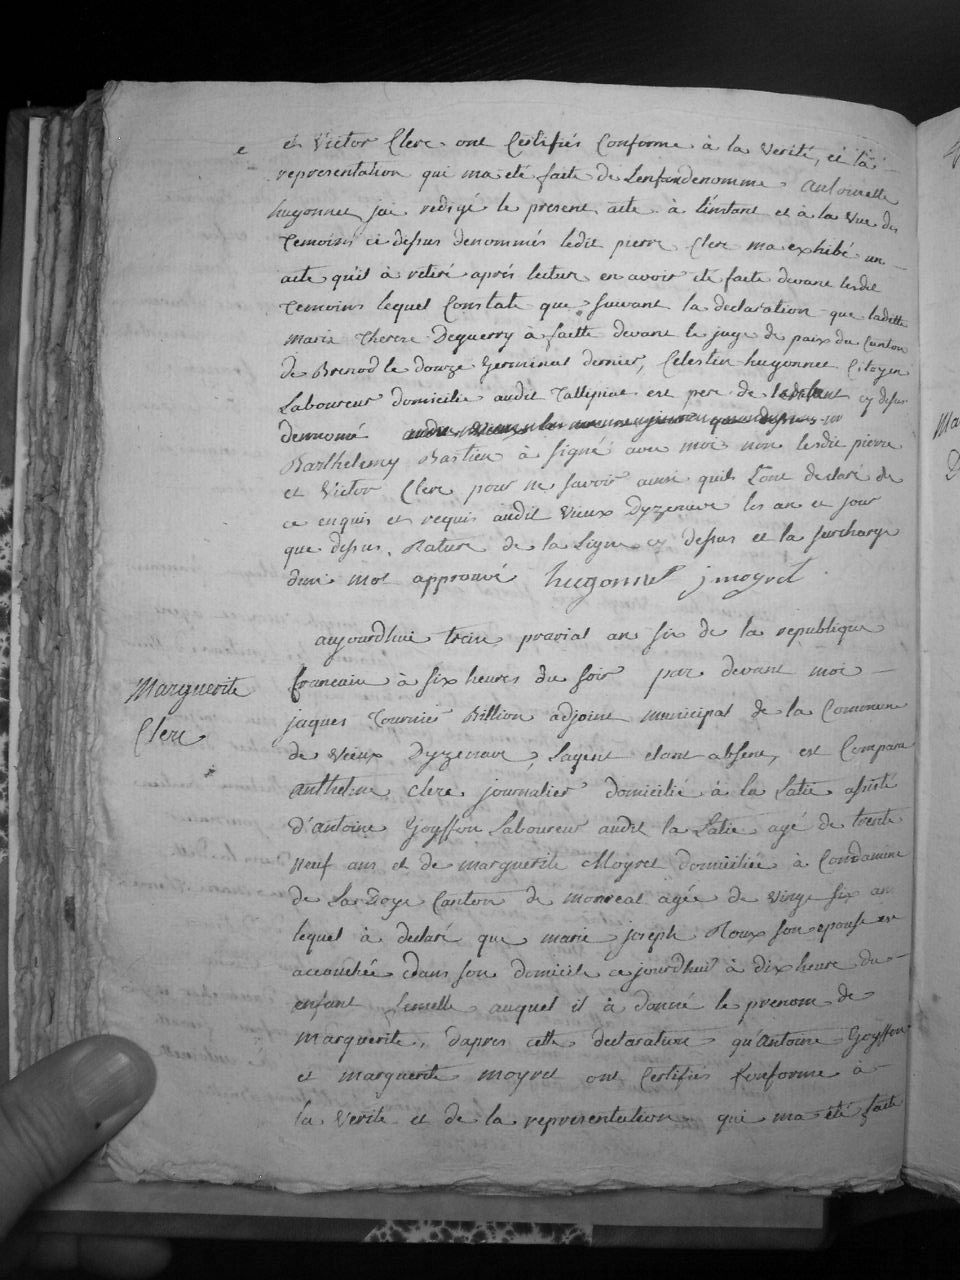 et Victor Clerc ont Certifiés Conforme à la Verité, et la
representation qui ma eté faite de Lenfandenomme Antoinette
hugonnet jai redigé le present acte à l'instant et à la Vue des
Temoins ci dessus denommés ledit pierre Clerc ma exhibé un
acte quil à retiré aprés lecture en avoir eté faite devant lesdit
Temoins lequel Constate que suivant la declaration que ladette
Marie Therese Deguerry à faitte devant le juge de paix du Canton
de Brenod le douze Germinal dernier, Celestin hugonnet Citoyen
Laboureur domicilie audit Tallipiat est pere de cy desus
dennomé
Barthelemy Bastien à signé avec moi non lesdit pierre
et Victor Clerc pour ne savoir ainsi quils Lont declaré de
ce enquis et requis audit Vieux Dyzenave les an et jour
que dessus. Rature de la Ligne cy dessus et la surcharge
dun mot approuvé hugonnet j moyret
aujourdhui treize prairial an six de la republique
francaise à six heures du soir par devant moi
Marguerite
Clerc
jaques Tournier Billion adjoint municipal de la Commune
de Vieux Dyzenave, Lagent etant absent, est Comparu
anthelme Clerc journalier domicilié à la Latie assisté
d'antoine Goyffon Laboureur audit la Latie agé de trente
neuf ans et de marguerite Moyret domiciliée à Condamine
de LarDoye Canton de monreal agée de vingt six an
lequel à declaré que marie joseph Roux son epouse est
accouchée dans son domicile ce jourdhui à dix heure du
enfant femelle auquel il à donné le prenom de
Marguerite, dapres cette declaration qu'Antoine Goyffon
et marguerite moyret ont Certifiés Conforme à
la Verite et de la representation qui ma eté faite